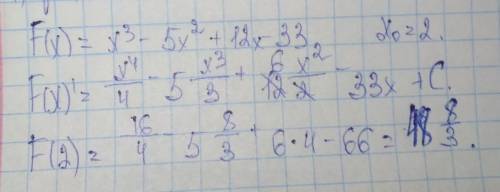 F(x) = x³ - 5x² + 12x - 33   x₀ = 2.
F(x)' = x⁴/4 - 5 x³/3 + 6 x²/ - 33x + C.
F(2) = 16/4 - 5 8/3 + 6·4 - 66 = 8/3.